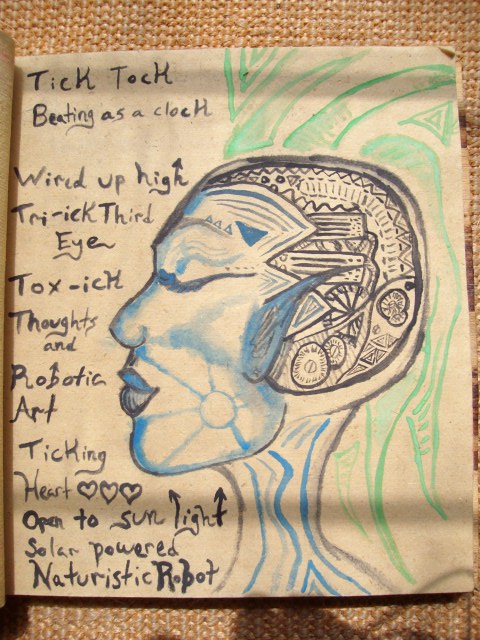 Tick Tock
Beating as a clock
Wired up high
Tri-ick Third
Eye
Tox-ick
Thoughts
and
Robotic
Art
Ticking
Heart ♡♡♡
Open to sun light
Solar powered
Naturistic Robot